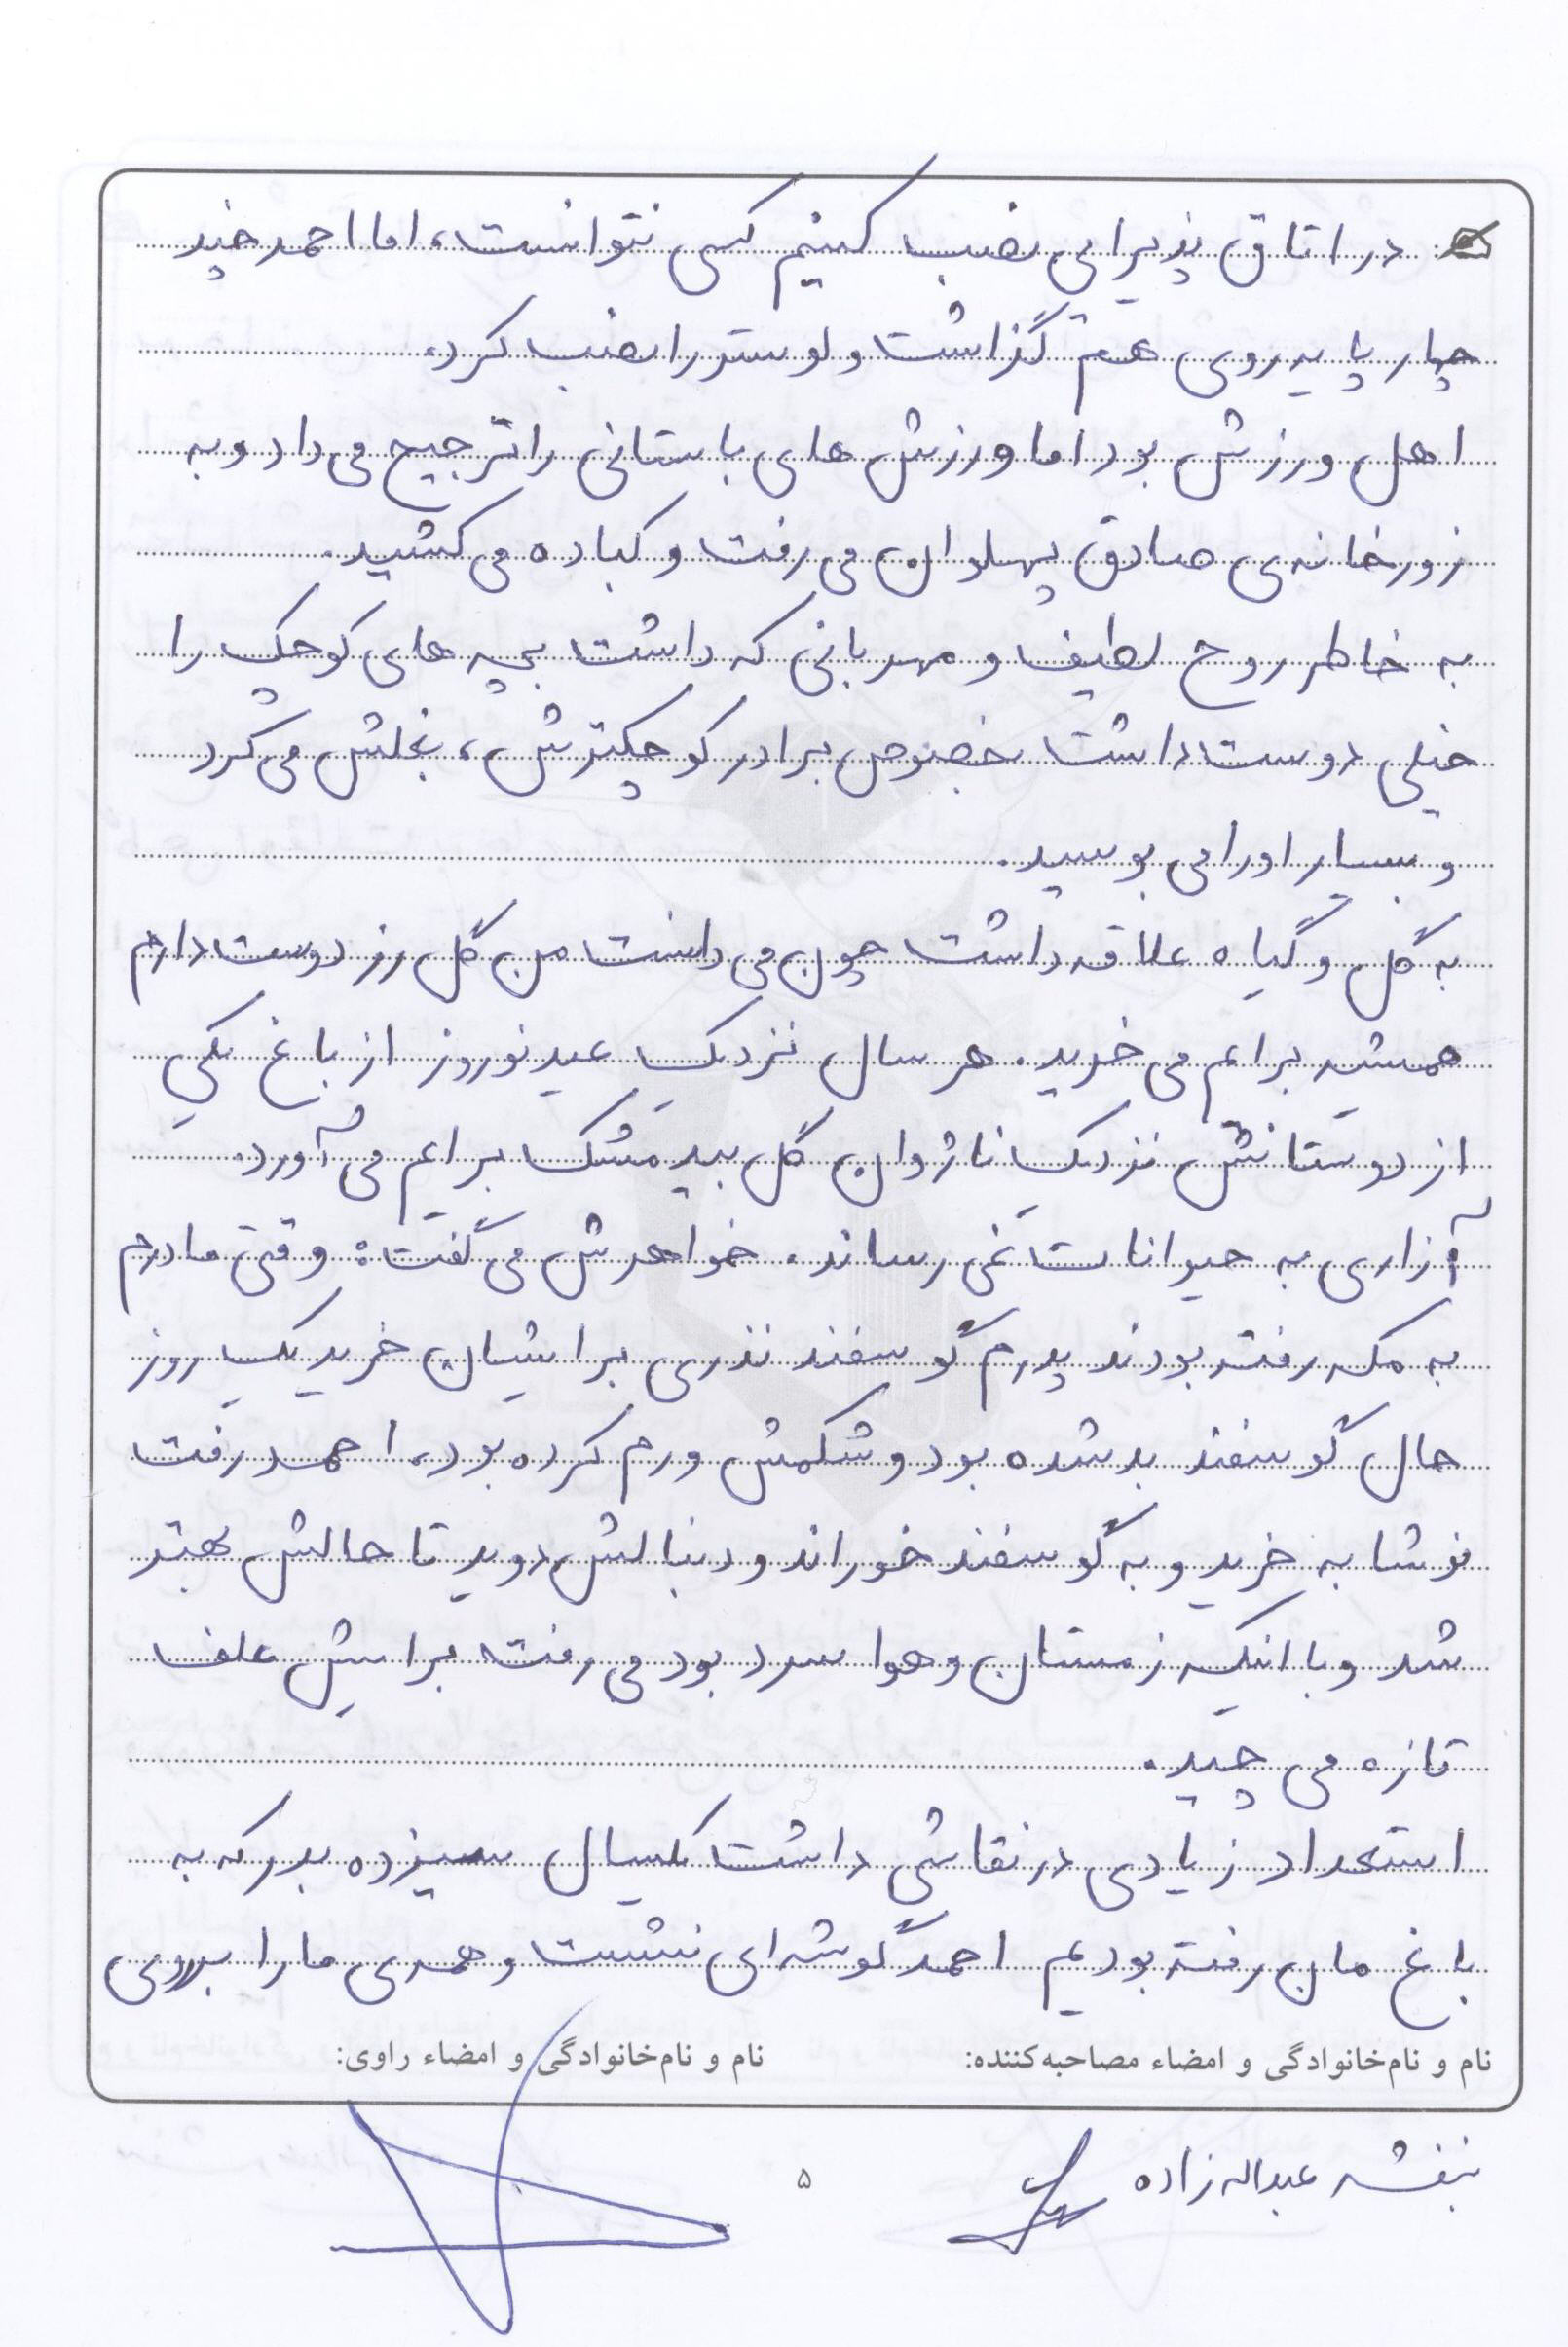 در اتاق پذیرایی نصب کنیم کسی نتوانست، اما احمد چند
چهار پایه روی هم گذاشت و لوستر را نصب کرد.
اهل ورزش بود اما ورزش های باستانی را ترجیح می داد و به
زورخانه ی صادق پهلوان می رفت و کباده می کشید.
به خاطر روح لطیف و مهربانی که داشت بچه های کوچک را
خیلی دوست داشت بخصوص برادر کوچکترش، بغلش می کرد
و بسیار او را می بوسید.
به گل و گیاه علاقه داشت چون می دانست من گل رز دوست دارم
همیشه برایم می خرید. هر سال نزدیک عید نوروز از باغ یکی
از دوستانش نزدیک ناژوان گل بید مشک برایم می آورد.
آزاری به حیوانات نمی رساند. خواهرش می گفت: وقتی مادرم
به مکه رفته بودند پدرم گوسفند نذری برایشان خرید یک روز
حال گوسفند بد شده بود و شکمش ورم کرده بود، احمد رفت
نوشابه خرید و به گوسفند خوراند و دنبالش دوید تا حالش بهتر
شد و با اینکه زمستان و هوا سرد بود می رفت برایش علف
تازه می چید.
استعداد زیادی در نقاشی داشت یکسال سیزده بدر که به
باغ مان رفته بودیم احمد گوشه ای نشست و همه ی ما را بر روی
نام و نام‌خانوادگی و امضاء مصاحبه‌کننده: نام و نام‌خانوادگی و امضاء راوی:
بنفشه عبداله زاده
۵